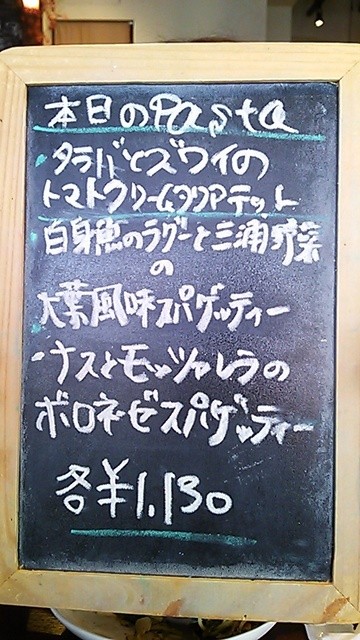 本日のPasta
・タラバとズワイの
トマトクリームタリアテッレ
・白身魚のラグーと三浦野菜
の
大葉風味スパゲッティー
・ナスとモッツァレラの
ボロネーゼスパゲッティー
各¥1.130